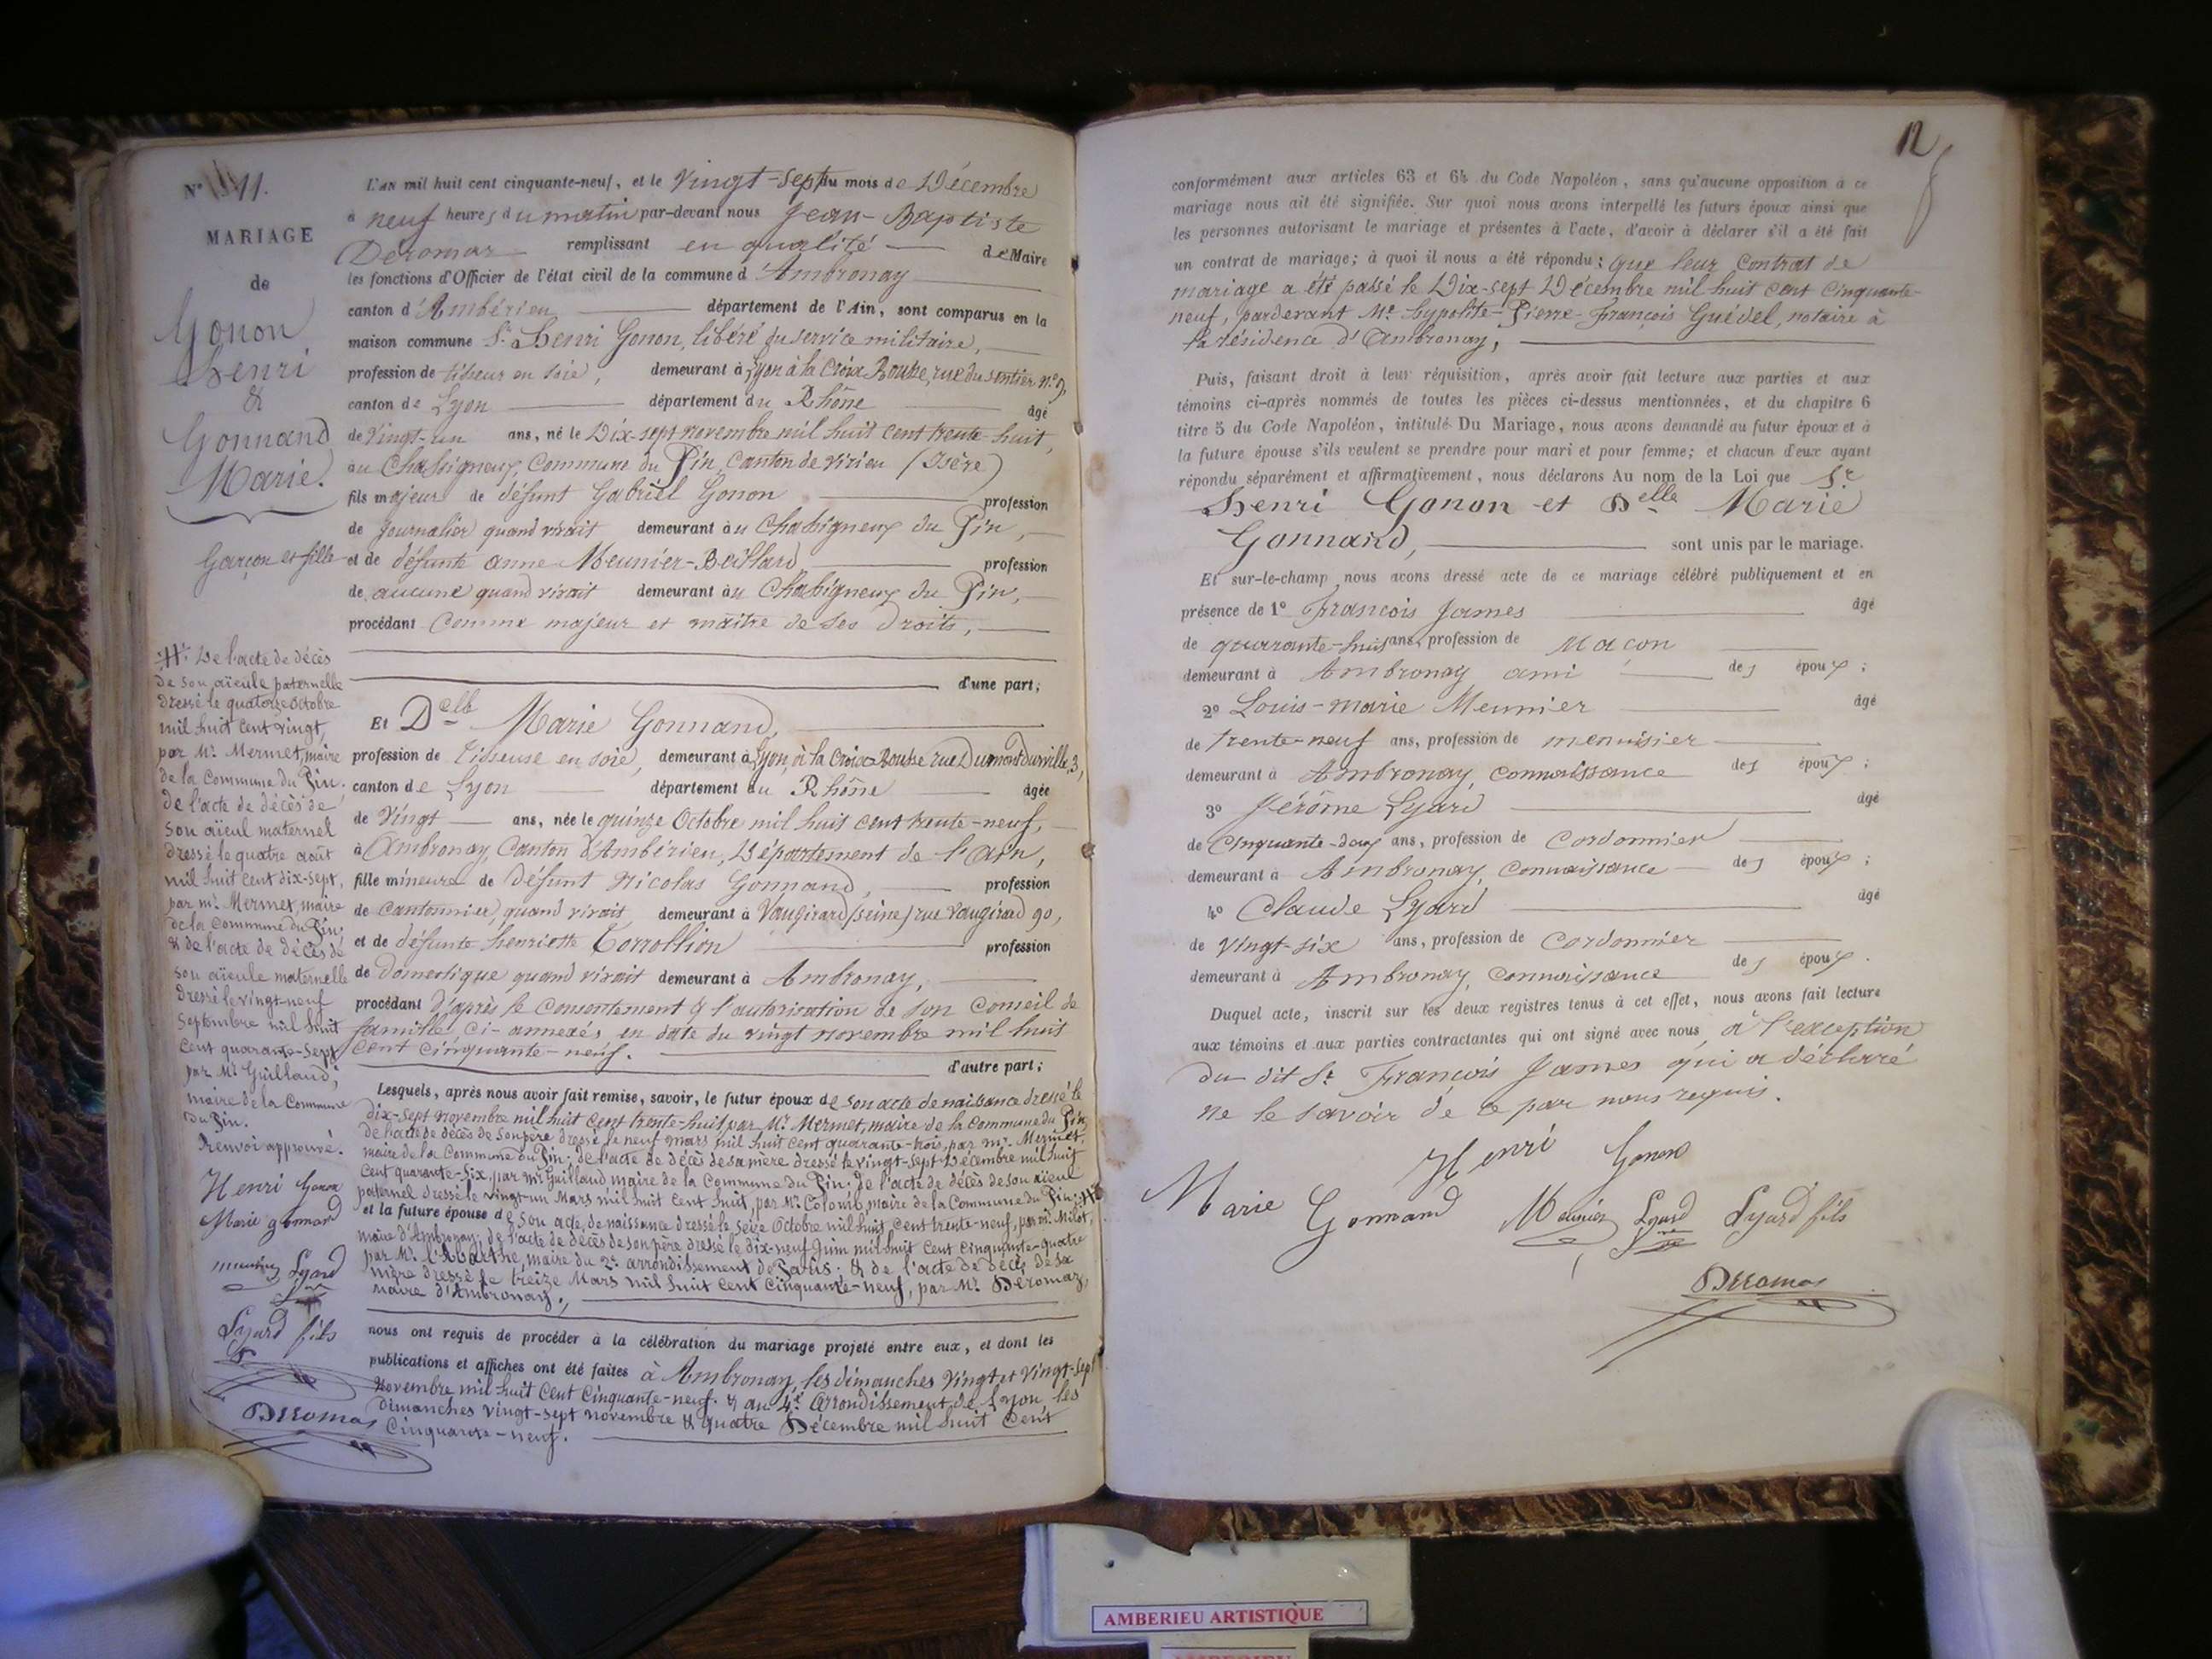 N° 11.
MARIAGE
de
Gonon
Henri
&
Gonnand
Marie.
Garçon et fille
L'an mil huit cent cinquante-neuf, et le Vingt-sept du mois de Décembre
à neuf heures du matin par-devant nous Jean-Baptiste
Déromas remplissant en qualité de Maire
les fonctions d'Officier de l'état civil de la commune d'Ambronay
canton d'Ambérieu département de l'Ain, sont comparus en la
maison commune Sr. Henri Gonon, libéré du service militaire,
profession de tisseur en soie, demeurant à Lyon à la Croix Rousse, rue du sentier n° 9,
canton de Lyon département du Rhône âgé
de Vingt-un ans, né le Dix-sept novembre mil huit cent trente-huit,
au Chassigneux, Commune du Pin, Canton de Virieu (Isère)
fils majeur de défunt Gabriel Gonon profession
de journalier quand vivait demeurant au Chassigneux du Pin,
et de défunte anne Meunier-Beillard profession
de aucune quand vivait demeurant au Chassigneux du Pin,
procédant Comme majeur et maître de ses Droits,
d'une part;
Et Delle Marie Gonnand,
profession de tisseuse en soie, demeurant à Lyon, à la Croix Rousse rue Dumont Durville, 3,
canton de Lyon département du Rhône âgée
de Vingt ans, née le quinze Octobre mil huit cent trente-neuf,
à Ambronay, Canton d'Ambérieu, Département de l'Ain,
fille mineure de défunt Nicolas Gonnand, profession
de Cantonnier, quand vivait, demeurant à Vaugirard (seine) rue Vaugirard 90,
et de défunte henriette profession
de Domestique quand vivait demeurant à Ambronay,
procédant D'après le Consentement & l'autorisation de son Conseil de
famille, ci-annexés, en date du vingt novembre mil huit
cent cinquante-neuf.
d'autre part;
Lesquels, après nous avoir fait remise, savoir, le futur époux de son acte de naissance dressé le
dix-sept novembre mil huit cent trente-huit par Mr. Mermet, maire de la Commune du Pin,
de l'acte de décès de son père dressé le neuf mars mil huit cent quarante-trois, par mr. Mermet,
maire de la Commune du Pin; de l'acte de décès de sa mère dressé le vingt-sept Décembre mil huit
Cent quarante-six, par mr Guillaud maire de la Commune du Pin. de l'acte de décès de son aïeul
paternel dressé le vingt-un Mars mil huit cent huit, par Mr. Colomb, maire de la Commune du Pin; H
et la future épouse de son acte de naissance dressé le seize Octobre mil huit cent trente-neuf, par mr. Milet,
maire d'Ambronay; de l'acte de décès de son père dressé le dix-neuf Juin mil huit cent cinquante-quatre
par Mr. maire du 2e. arrondissement de Paris; & de l'acte de décès de sa
mère dressé le treize Mars mil huit cent cinquante-neuf, par Mr. Déromas,
maire d'Ambronay;
nous ont requis de procéder à la célébration du mariage projeté entre eux, et dont les
publications et affiches ont été faites à Ambronay, les dimanches Vingt et Vingt-sept
Novembre mil huit cent cinquante-neuf. & au 4e. Arrondissement de Lyon, les
dimanches vingt-sept novembre & quatre Décembre mil huit cent
cinquante-neuf.
H. De l'acte de décès
de son aïeule paternelle
dressé le quatorze Octobre
mil huit cent vingt,
par Mr. Mermet, maire
de la Commune du Pin.
de l'acte de décès de
son aïeul maternel
dressé le quatre août
mil huit cent dix-sept,
par mr. Mermet, maire
de la Commune du Pin.
& de l'acte de décès de
son aïeule maternelle
dressé le vingt-neuf
Septembre mil huit
cent quarante-sept
par Mr Guillaud,
maire de la Commune
du Pin.
Renvoi approuvé.
Henri Gonon
Marie gonnand
meunier Lyard
Lyard fils
Déromas
12
conformément aux articles 63 et 64 du Code Napoléon, sans qu'aucune opposition à ce
mariage nous ait été signifiée. Sur quoi nous avons interpellé les futurs époux ainsi que
les personnes autorisant le mariage et présentes à l'acte, d'avoir à déclarer s'il a été fait
un contrat de mariage; à quoi il nous a été répondu: que leur Contrat de
mariage a été passé le Dix-sept Décembre mil huit cent cinquante-
neuf, pardevant Me. hypolite-Pierre-François Guédel, notaire à
la résidence d'Ambronay,
Puis, faisant droit à leur réquisition, après avoir fait lecture aux parties et aux
témoins ci-après nommés de toutes les pièces ci-dessus mentionnées, et du chapitre 6
titre 5 du Code Napoléon, intitulé Du Mariage, nous avons demandé au futur époux et à
la future épouse s'ils veulent se prendre pour mari et pour femme; et chacun d'eux ayant
répondu séparément et affirmativement, nous déclarons Au nom de la Loi que Sr.
Henri Gonon et Delle Marie
Gonnand, sont unis par le mariage.
Et sur-le-champ nous avons dressé acte de ce mariage célébré publiquement et en
présence de 1° François James âgé
de quarante-huit ans, profession de Maçon
demeurant à Ambronay ami des époux;
2° Louis-marie Meunier âgé
de trente-neuf ans, profession de menuisier
demeurant à Ambronay, connaissance des époux;
3° Jérôme Lyard âgé
de cinquante-deux ans, profession de Cordonnier
demeurant à Ambronay, connaissance des époux;
4° Claude Lyard âgé
de vingt-six ans, profession de Cordonnier
demeurant à Ambronay, connaissance des époux.
Duquel acte, inscrit sur les deux registres tenus à cet effet, nous avons fait lecture
aux témoins et aux parties contractantes qui ont signé avec nous, à l'exception
du dit Sr. François James qui a déclaré
ne le savoir de ce par nous requis.
Henri Gonon
Marie Gonnand Meunier Lyard Lyard fils
Déromas
AMBERIEU ARTISTIQUE
AMBERIEU